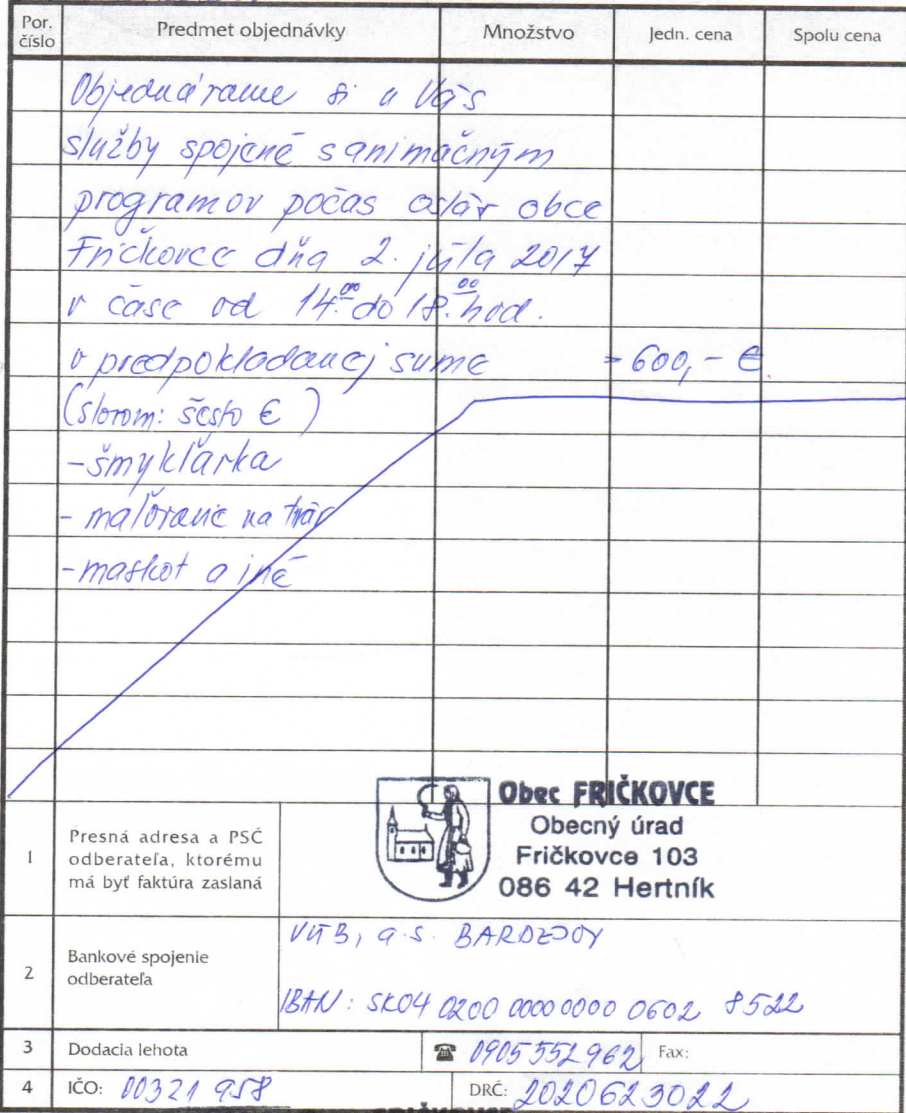 Por. číslo Predmet objednávky Množstvo Jedn. cena Spolu cena
Objednávame si u Vás
služby spojené s animačným
programov počas osláv obce
Fričkovce dňa 2. júla 2017
v čase od 14.00 do 18.00 hod.
v predpokladanej sume =600,- €
(slovom: šesto € )
- šmyklavka
- maľovanie na tvár
- maskot a iné
Obec FRIČKOVCE
Obecný úrad
Fričkovce 103
086 42 Hertník
1 Presná adresa a PSČ
odberateľa, ktorému
má byť faktúra zaslaná
VÚB, a.s. BARDEJOV
2 Bankové spojenie
odberateľa
IBAN: SK04 0200 0000 0000 0602 8522
3 Dodacia lehota ☎ 0905 552 962 Fax:
4 IČO: 00321 958 DRČ: 2020623022